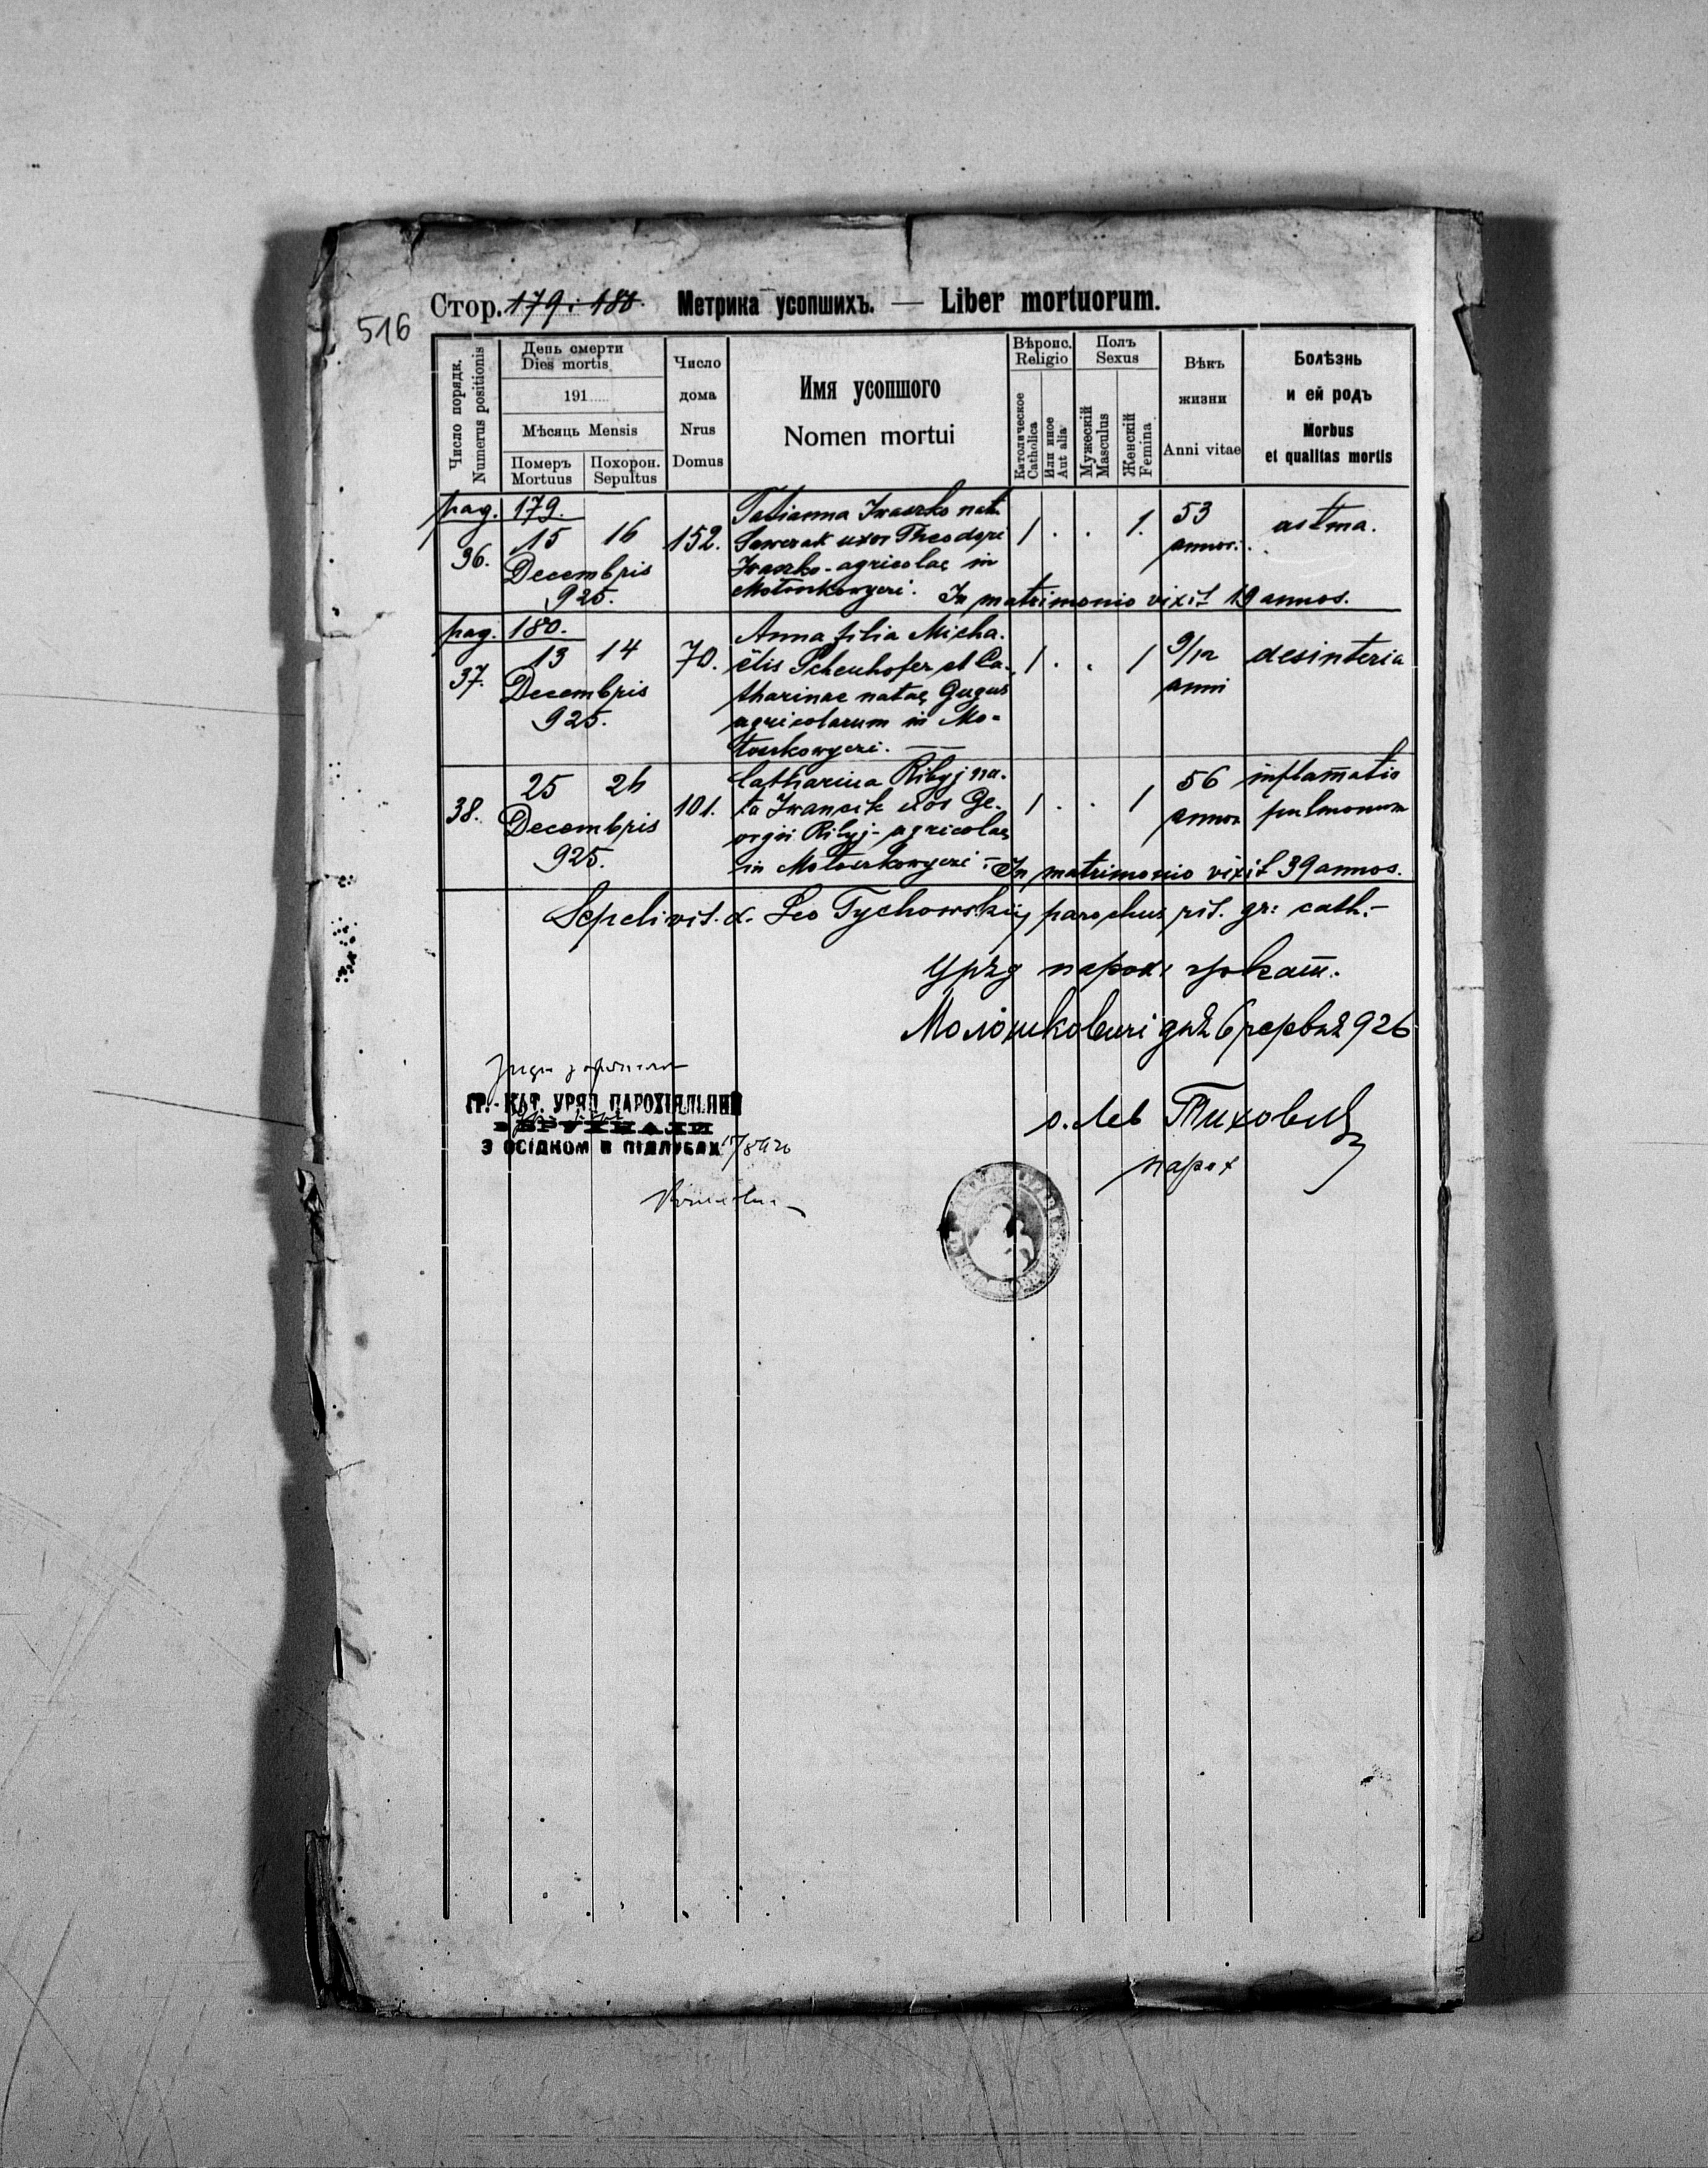 516
Стор. 179 i 180. Метрика усопшихъ. — Liber mortuorum.
Число порядк.
Numerus positionis
День смерти
Dies mortis
191
Мѣсяць Mensis
Померъ
Mortuus
Похорон.
Sepultus
Число
дома
Nrus
Domus
Имя усопшого
Nomen mortui
Вѣроис.
Religio
Католическое
Catholica
Или иное
Aut alia
Полъ
Sexus
Мужескій
Masculus
Женскій
Femina
Вѣкъ
жизни
Anni vitae
Болѣзнь
и ей родъ
Morbus
et qualitas mortis
pag. 179.
36.
15 16
Decembris
925.
152.
Tatianna Iwaszko nat.
uxor Theodori
Iwaszko - agricolae in
Motoszkowyczi. In matrimonio vixit 19 annos.
1 . . 1.
53
annos.
astma.
pag. 180.
37.
13 14
Decembris
925.
70.
Anna filia Micha-
ëlis Schenhofer et Ca-
tharinae natae Gugus
agricolarum in Mo-
toszkowyczi. —
1 . . 1
9/12
anni
desinteria
38.
25 26
Decembris
925.
101.
Catharina Ribyj na-
ta Iwancik uxor Ge-
orgii Ribyj - agricolae
in Motoszkowyczi - In matrimonio vixit 39 annos.
1 . . 1
56
annos
inflamatio
pulmonum
Sepelivit. Leo Tychowskij parochus rit. gr: cath: -
Уряд парох. гр. кат.
Молошковичі дня 6 червня 926
о. Лев Тиховий
парох
ГР.-КАТ. УРЯД ПАРОХІЯЛЬНИЙ
З ОСІДКОМ В ПІДЛУБАХ